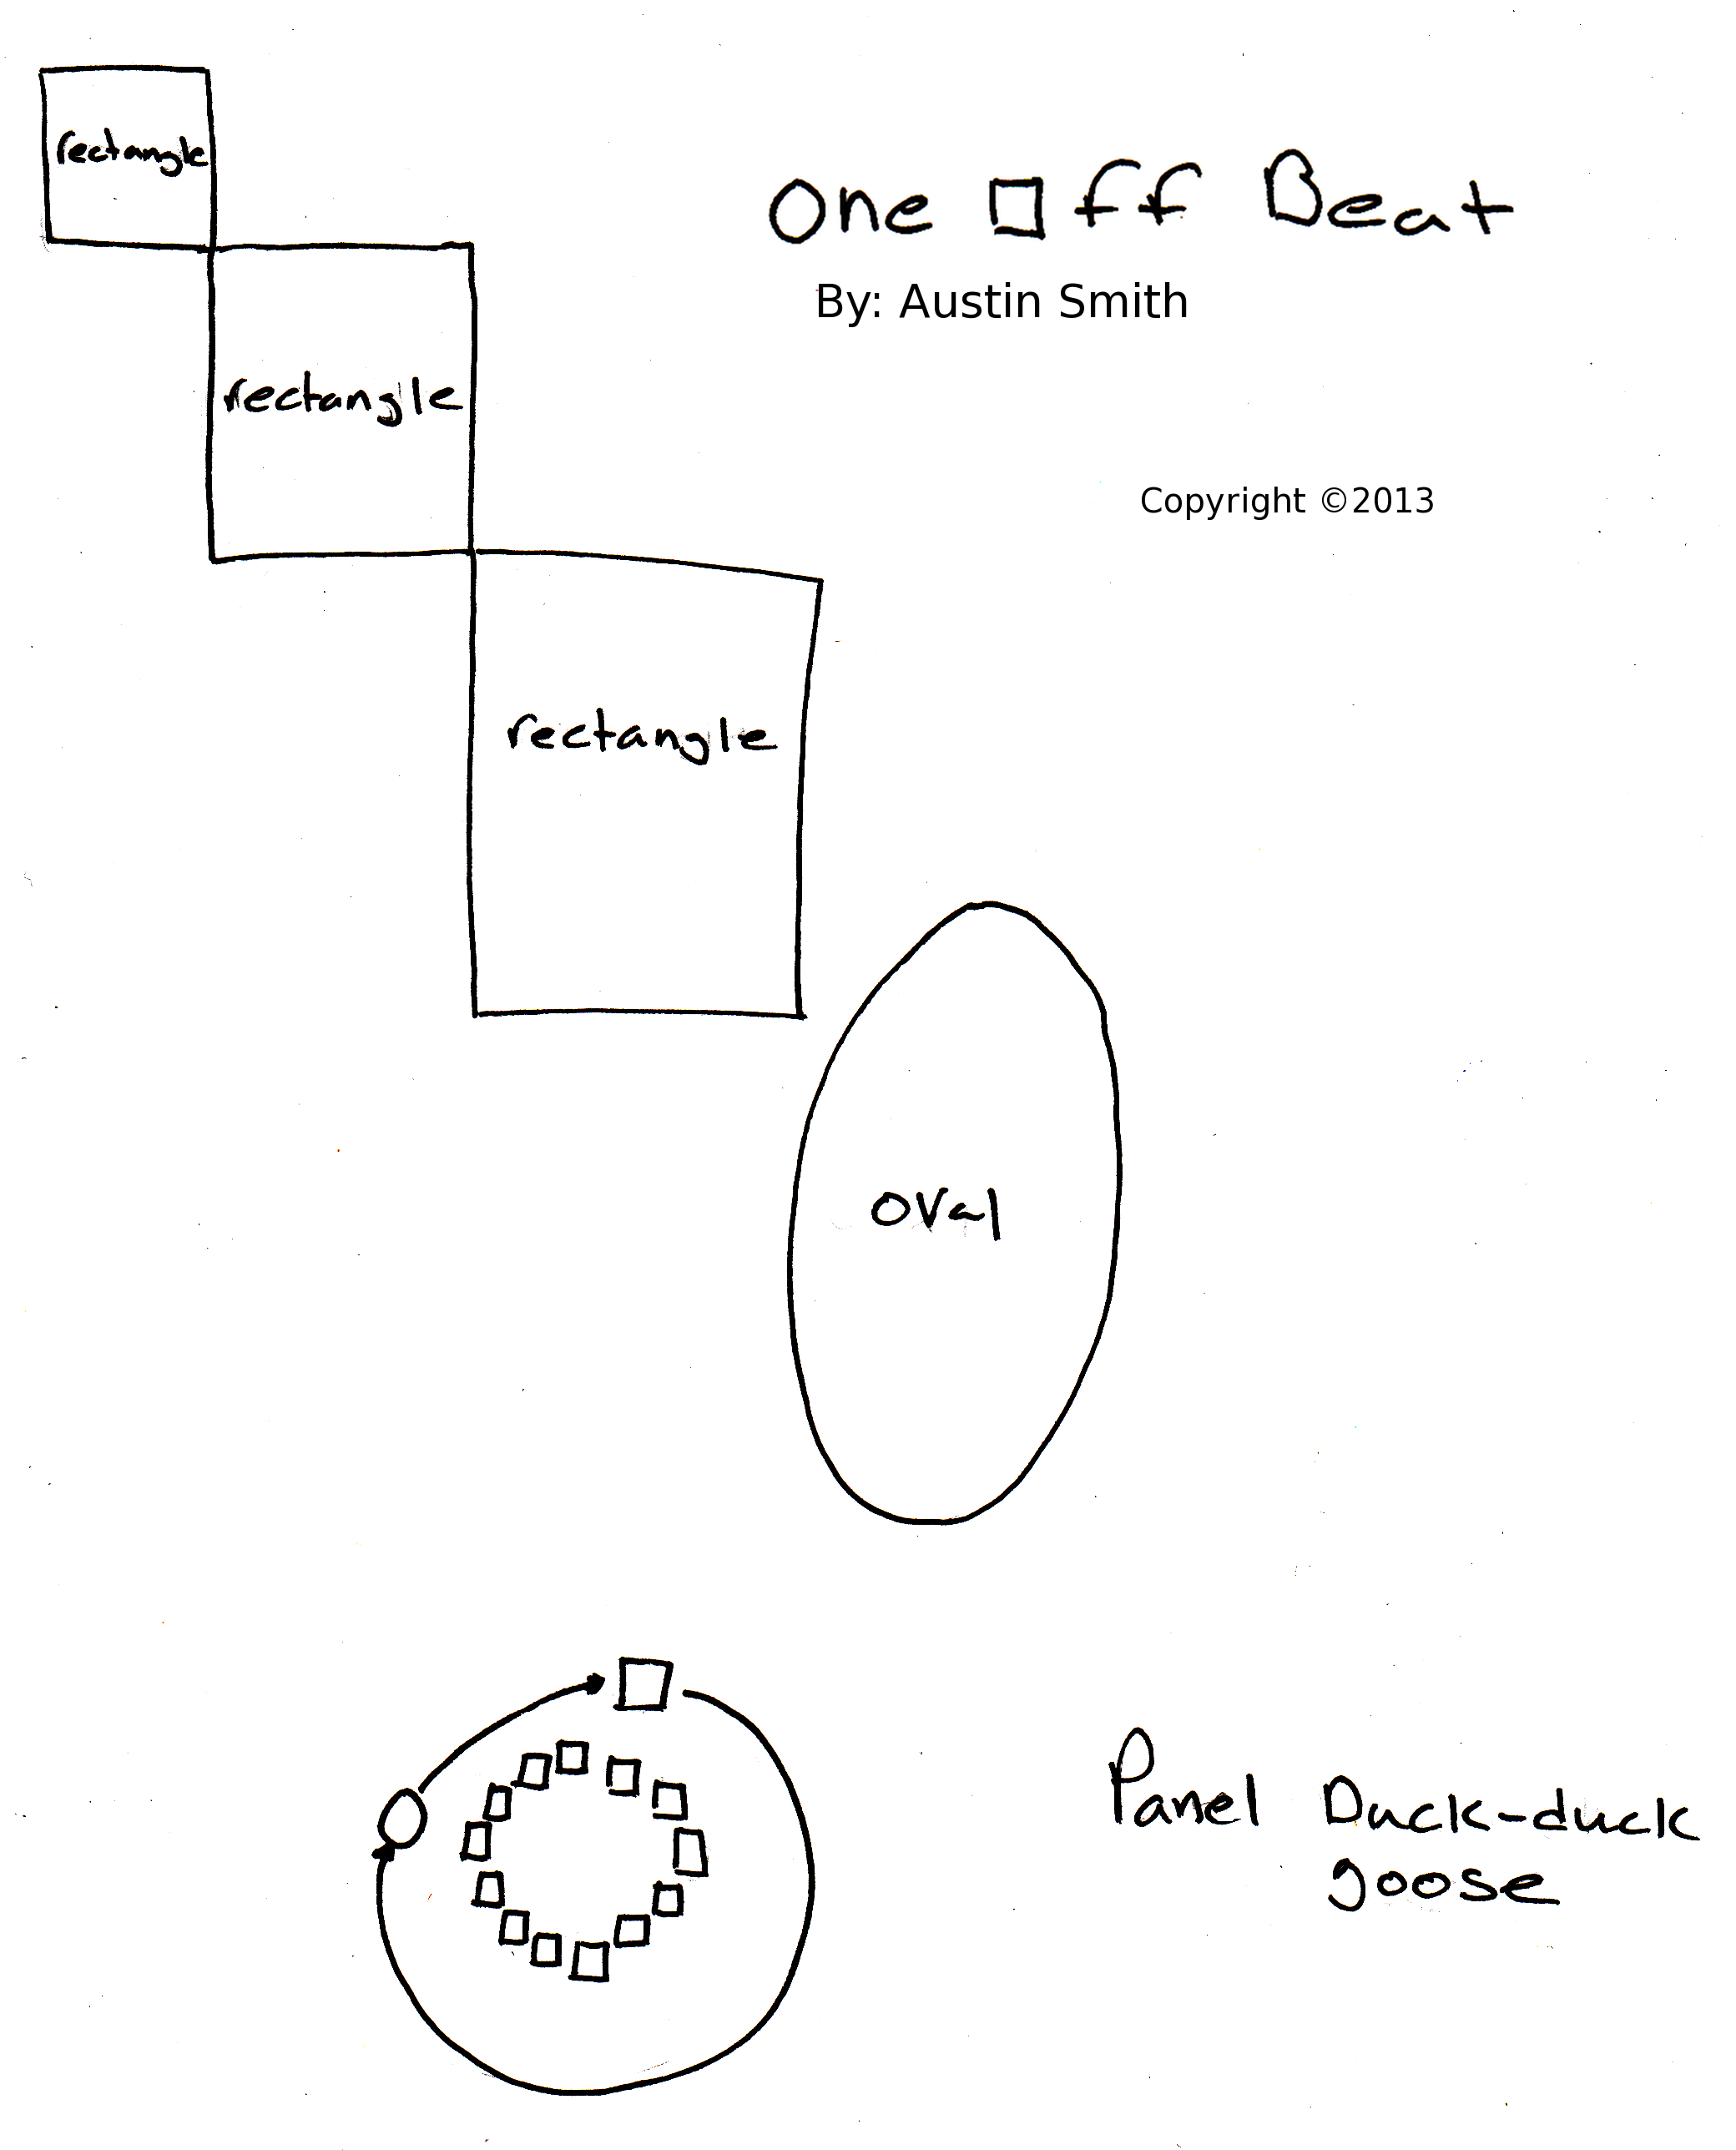 rectangle
One Off Beat
By: Austin Smith
rectangle
Copyright ©2013
rectangle
oval
Panel Duck-duck
goose